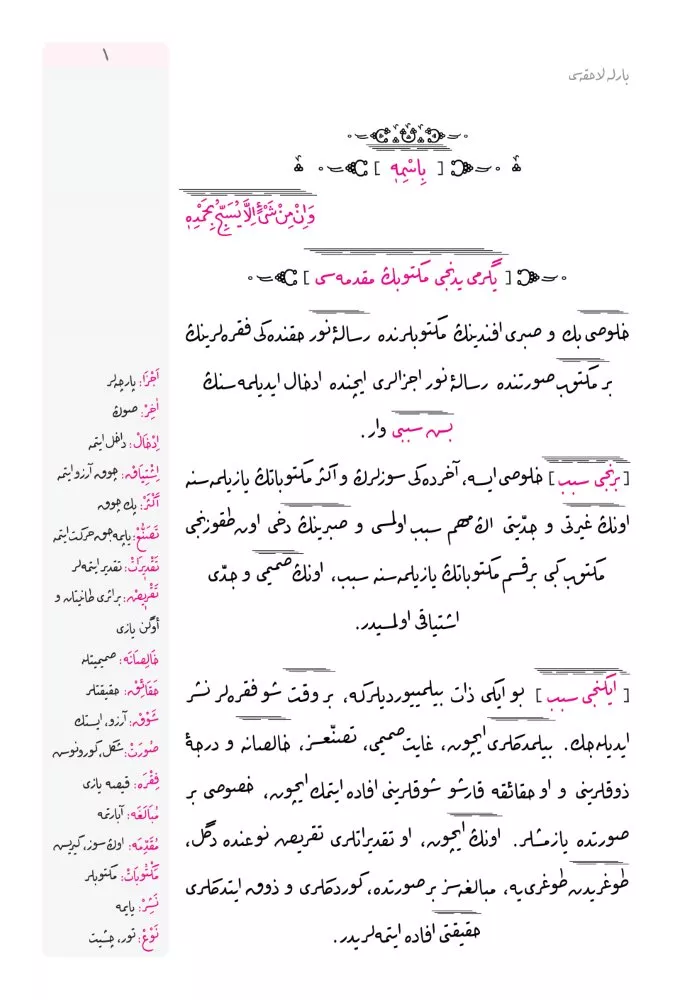 بارلہ لاحقه‌سی
١
[ بِاسْمِهٖ ]
وَاِنْ مِنْ شَیْءٍ اِلَّا یُسَبِّحُ بِحَمْدِهٖ
[ یگرمی یدنجی مکتوبڭ مقدمه‌سی ]
خلوصی بك و صبری افندینڭ مکتوبلرنده رسالۀ نور حقنده‌کی فقره‌لرینڭ
بر مکتوب صورتنده رسالۀ نور اجزالری ایچنده ادخال ایدیلمه‌سنڭ
بش سببی وار.
[برنجی سبب] خلوصی ایسه، آخرده‌کی سوزلرڭ و اکثر مکتوباتڭ یازیلمه‌سنه
اونڭ غیرتی و جدّیتی اڭ مهم سبب اولمسی و صبرینڭ دخی اون طقوزنجی
مکتوب کبی بر قسم مکتوباتڭ یازیلمه‌سنه سبب، اونڭ صمیمی و جدّی
اشتیاقی اولمسیدر.
[ ایکنجی سبب ] بو ایکی ذات بیلمییوردیلرکه، بر وقت شو فقره‌لر نشر
ایدیله‌جك. بیلمدکلری ایچون، غایت صمیمی، تصنّعسز، خالصانه و درجۀ
ذوقلرینی و او حقائقه قارشو شوقلرینی افاده ایتمك ایچون، خصوصی بر
صورتده یازمشلر. اونڭ ایچون، او تقدیراتلری تقریض نوعنده دگل،
طوغریدن طوغری‌یه، مبالغه‌سز بر صورتده، کوردکلری و ذوق ایتدکلری
حقیقتی افاده ایتمه‌لریدر.
اَجْزَا: پارچه‌لر
اٰخِرْ: صوڭ
اِدْخَالْ: داخل ایتمه
اِشْتِیَاقْ: چوق آرزو ایتمه
اَکْثَرْ: پك چوق
تَصَنُّعْ: یاپمه‌جق حرکت ایتمه
تَقْدِیرَاتْ: تقدیر ایتمه‌لر
تَقْرِیضْ: بر اثری طانیتان و
اوگن یازی
خَالِصَانَه: صمیمیتله
حَقَائِقْ: حقیقتلر
شَوْقْ: آرزو، ایستك
صُورَتْ: شکل، کورونوش
فِقْرَه: قیصه یازی
مُبَالَغَه: آبارتمه
مُقَدِّمَه: اوڭ سوز، کیریش
مَکْتُوبَاتْ: مکتوبلر
نَشِرْ: یایمه
نَوْعْ: تور، چشیت